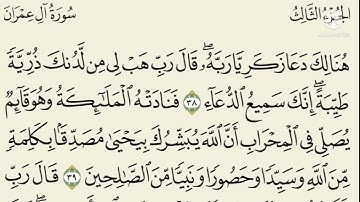 الجزء الثالث
سورة آل عمران
هُنَالِكَ دَعَا زَكَرِيَّا رَبَّهُۥ ۖ قَالَ رَبِّ هَبْ لِى مِن لَّدُنكَ ذُرِّيَّةً
طَيِّبَةً ۖ إِنَّكَ سَمِيعُ ٱلدُّعَآءِ ٣٨ فَنَادَتْهُ ٱلْمَلَٰٓئِكَةُ وَهُوَ قَآئِمٌ
يُصَلِّى فِى ٱلْمِحْرَابِ أَنَّ ٱللَّهَ يُبَشِّرُكَ بِيَحْيَىٰ مُصَدِّقًۢا بِكَلِمَةٍ
مِّنَ ٱللَّهِ وَسَيِّدًا وَحَصُورًا وَنَبِيًّا مِّنَ ٱلصَّٰلِحِينَ ٣٩ قَالَ رَبِّ